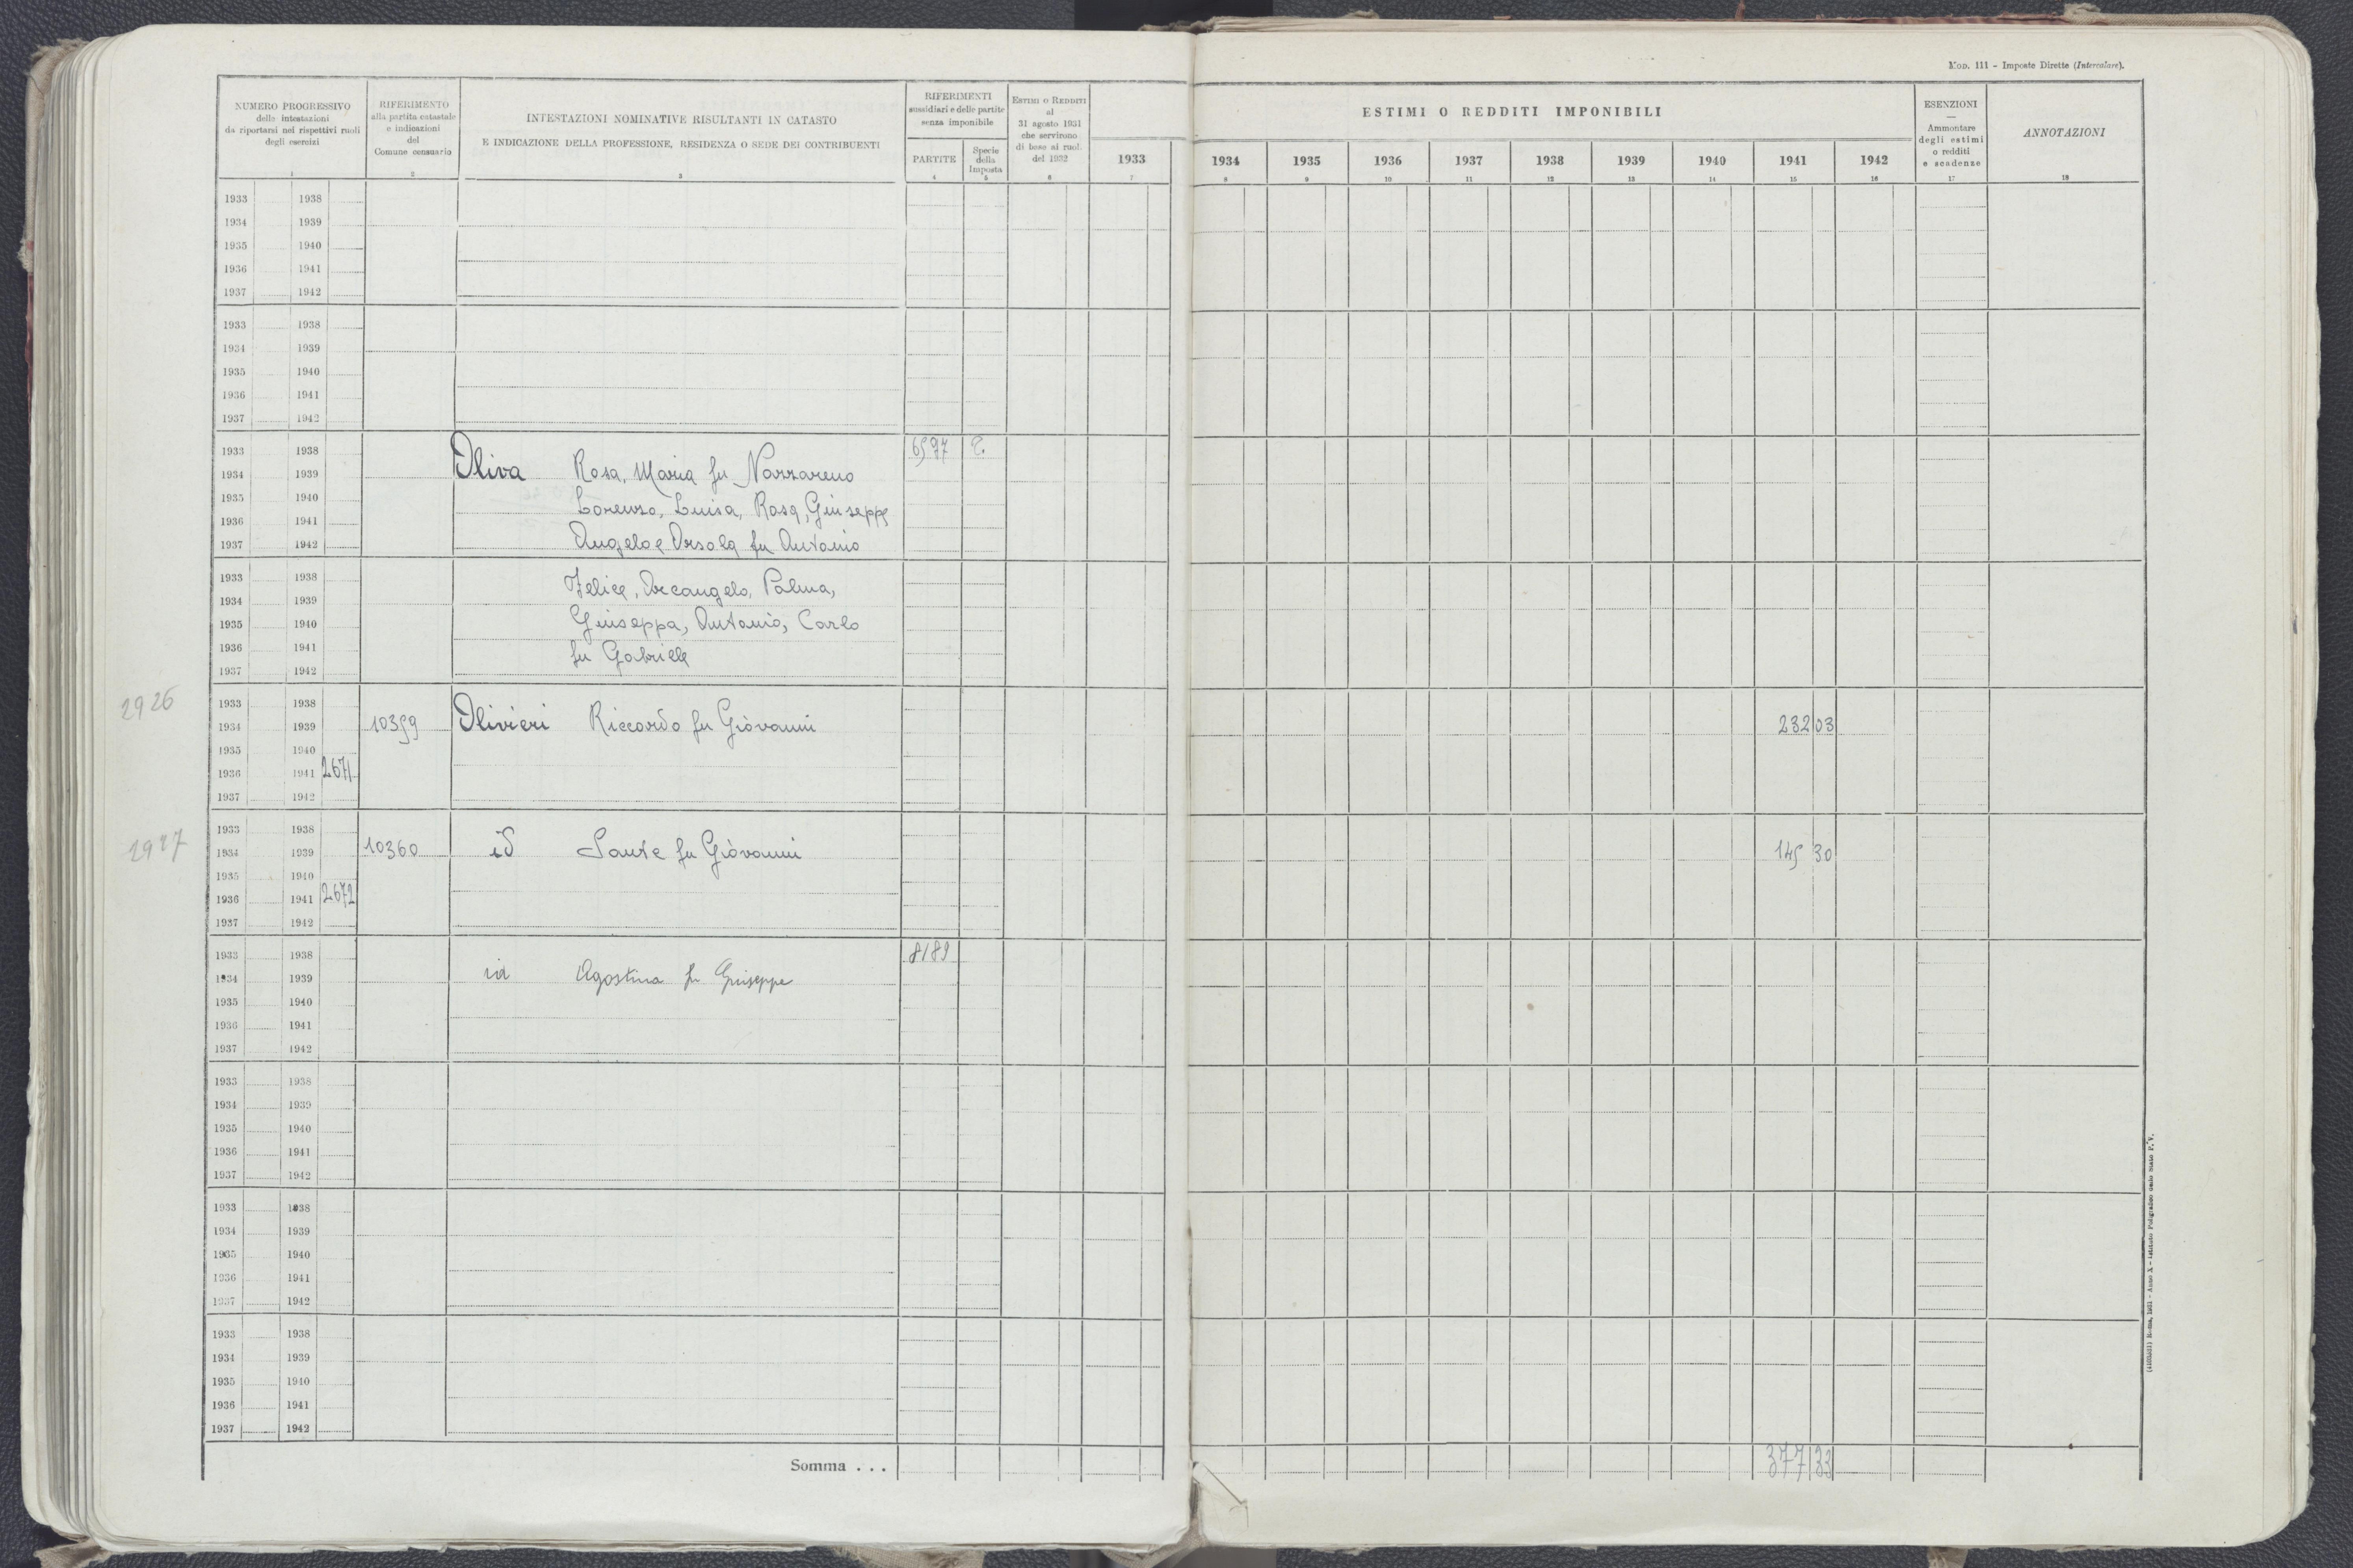 MOD. 111 - Imposte Dirette (Intercalare).
NUMERO PROGRESSIVO
delle intestazioni
da riportarsi nei rispettivi ruoli
degli esercizi
1
RIFERIMENTO
alla partita catastale
e indicazioni
del
Comune censuario
2
INTESTAZIONI NOMINATIVE RISULTANTI IN CATASTO
E INDICAZIONE DELLA PROFESSIONE, RESIDENZA O SEDE DEI CONTRIBUENTI
3
RIFERIMENTI
sussidiari e delle partite
senza imponibile
PARTITE
4
Specie
della
Imposta
5
ESTIMI O REDDITI
al
31 agosto 1931
che servirono
di base ai ruoli
del 1932
6
1933
7
ESTIMI O REDDITI IMPONIBILI
1934 1935 1936 1937 1938 1939 1940 1941 1942
8 9 10 11 12 13 14 15 16
ESENZIONI
—
Ammontare
degli estimi
o redditi
e scadenze
17
ANNOTAZIONI
18
1933 1938
1934 1939
1935 1940
1936 1941
1937 1942
1933 1938
1934 1939
1935 1940
1936 1941
1937 1942
1933 1938 6597
1934 1939 Oliva Rosa, Maria fu Nazzareno
1935 1940 Lorenzo, Luisa, Rosa, Giuseppe
1936 1941
1937 1942 Angelo e Orsola fu Antonio
1933 1938 Felice, Arcangelo, Palma,
1934 1939
1935 1940 Giuseppa, Antonio, Carlo
1936 1941 fu Gabriele
1937 1942
2926
1933 1938
1934 1939 10359 Olivieri Riccardo fu Giovanni 232 03
1935 1940
1936 1941 2671
1937 1942
2927
1933 1938
1934 1939 10360 id Sante fu Giovanni 145 30
1935 1940
1936 1941 2672
1937 1942
1933 1938 8189
1934 1939 id Agostina fu Giuseppe
1935 1940
1936 1941
1937 1942
1933 1938
1934 1939
1935 1940
1936 1941
1937 1942
1933 1938
1934 1939
1935 1940
1936 1941
1937 1942
1933 1938
1934 1939
1935 1940
1936 1941
1937 1942
Somma . . . 377 33